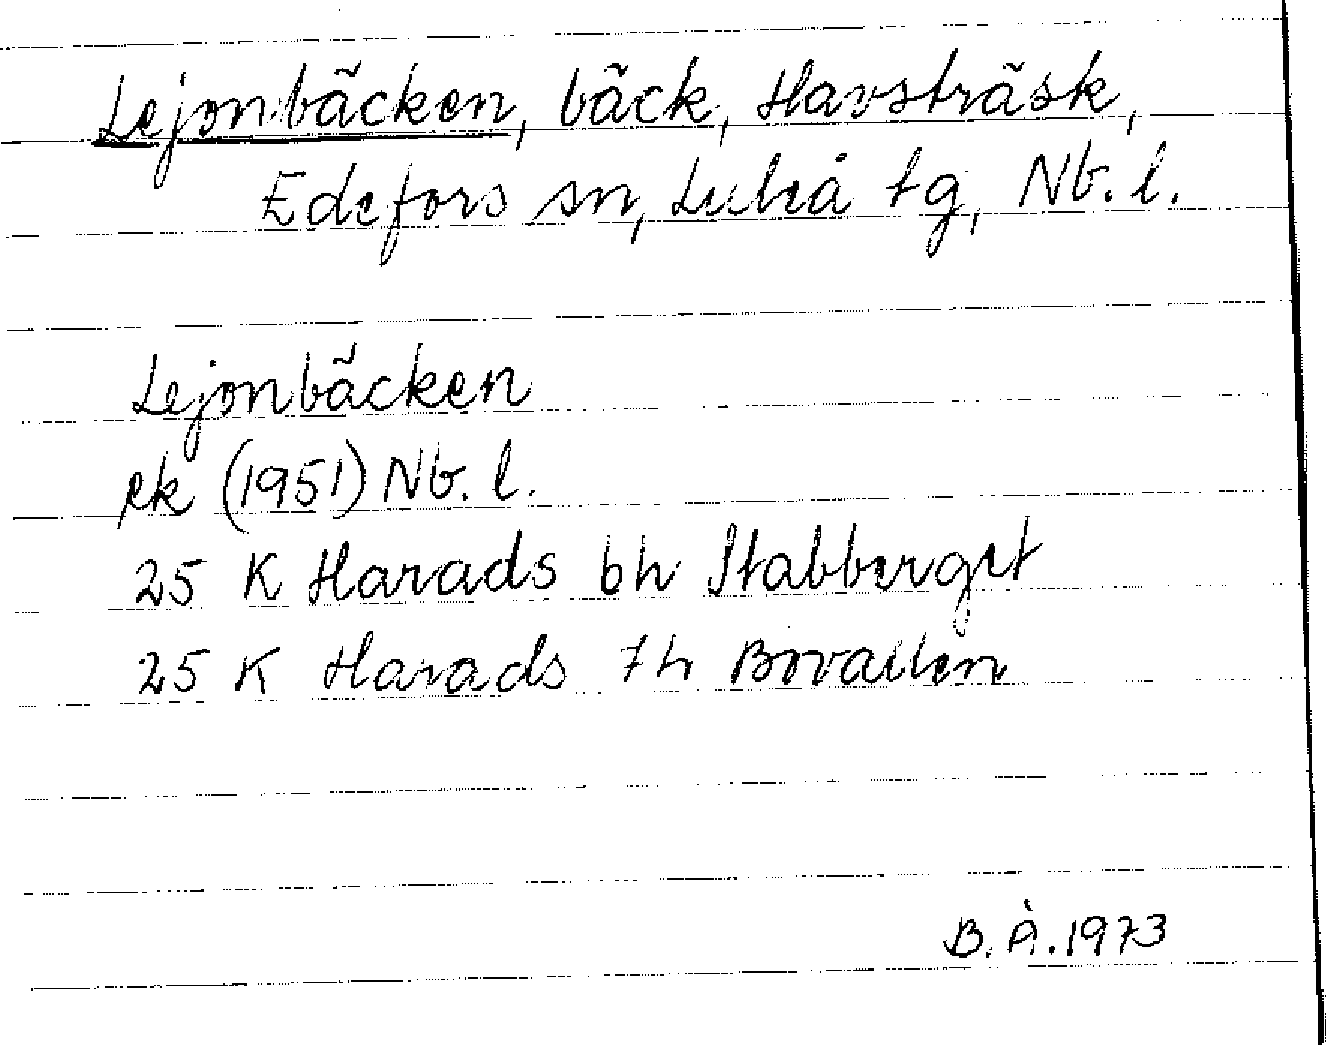 Lejonbäcken, bäck, Havsträsk,
Edefors sn, Luleå tg, Nb. l.
Lejonbäcken
rk (1951) Nb. l.
25 K Harads 6h Stabberget
25 K Harads 7h Bovallen
B. Å. 1973